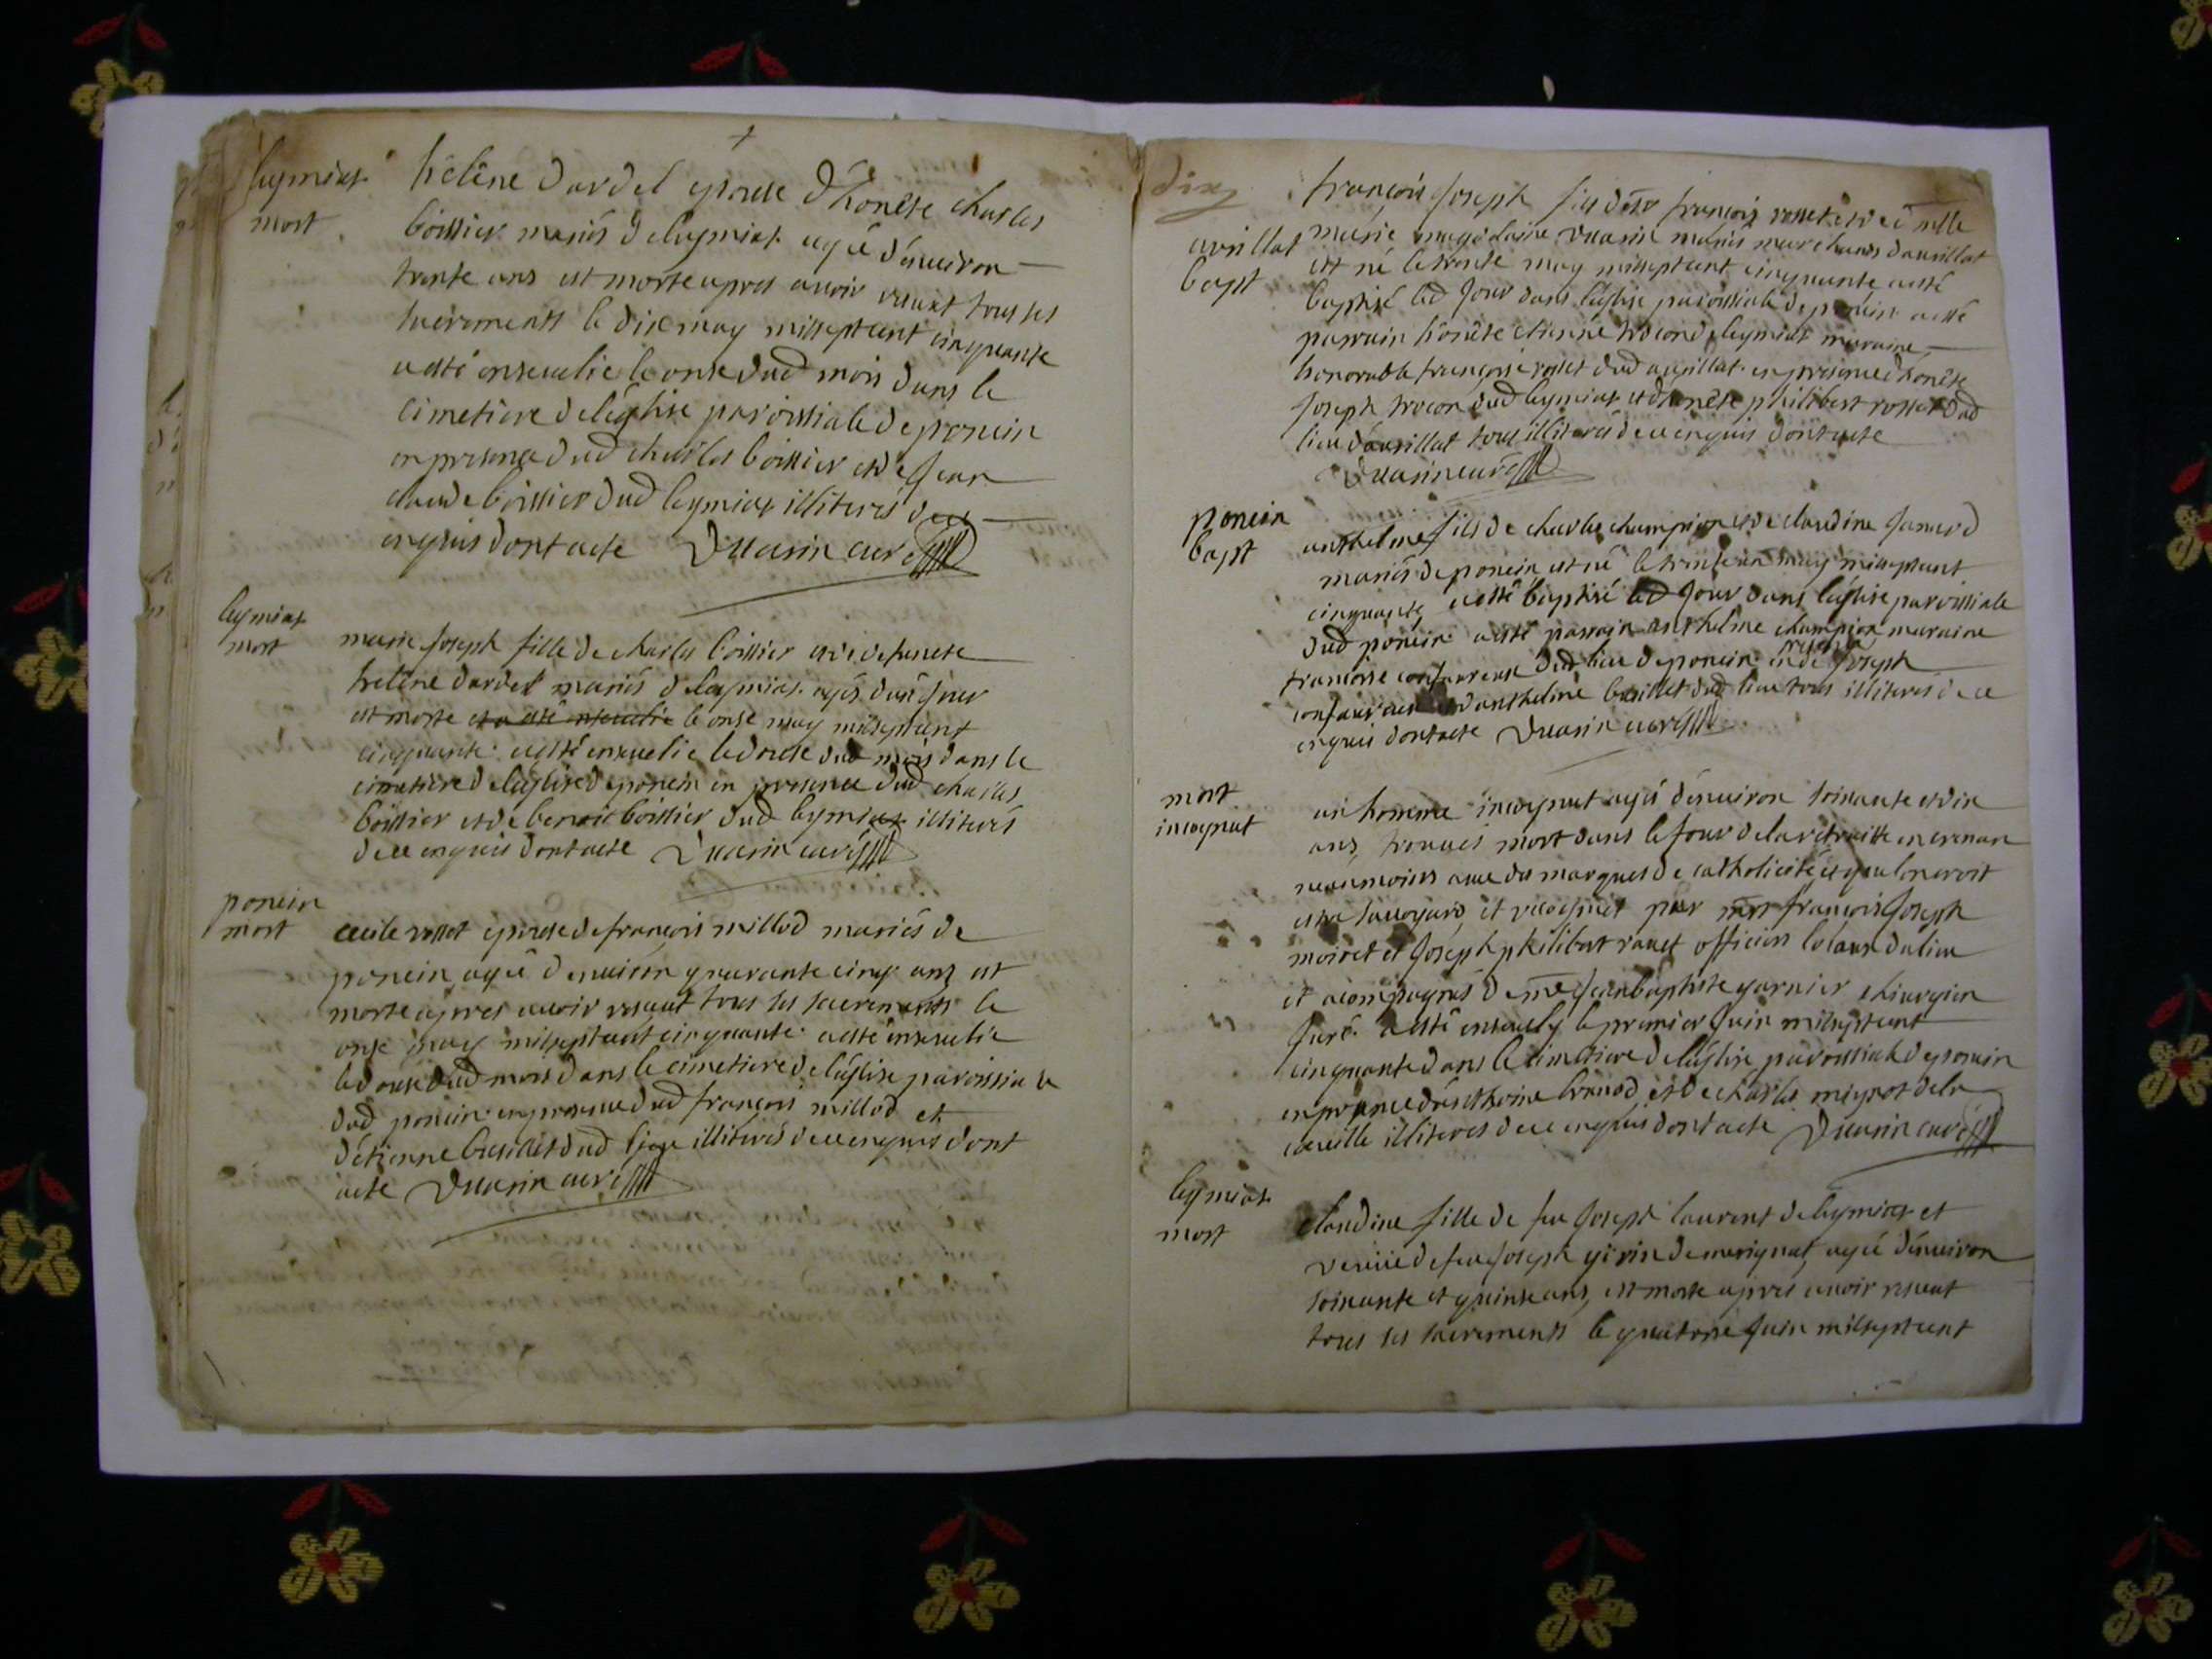 leymiat
mort
hélêne dardel epouse d'honête charles
boissier mariés de leymiat agée d'enuiron
trante ans est morte apres auoir resuut tous ses
sacrements le dix may millseptcent cinquante
a esté enseuelie le onse dud mois dans le
cimetiere de léglise paroissiale de poncin
en presence dud charles boissier et de jean
claude boissier dud leymiat illiterés de ce
enquis dont acte Duuarin curé
leymiat
mort
marie joseph fille de charles boissier et de defuncte
helêne dardel mariés de leymiat agés d'un jour
est morte et a esté enseuelie le onse may millseptcent
cinquante a esté enseuelie le douse dud mois dans le
cimetiere de léglise de poncin en presence dud charles
boissier et de benoit boissier dud leymiat illiterés
de ce enquis dont acte Duuarin curé
poncin
mort
cecile rosset epouse de francois millod mariés de
poncin agée d'enuiron quarante cinq ans est
morte apres auoir resuut tous ses sacrements le
onse may millseptcent cinquante a esté enseuelie
le douse dud mois dans le cimetiere de léglise paroissiale
dud poncin en presence dud francois millod et
d'étienne basillet dud lieu illiterés de ce enquis dont
acte Duuarin curé
dix
aurillat
bapt
francois joseph fils de francois rosset et de mlle
marie magdelaine Duuarin mariés marchands d'aurillat
est né le trante may millseptcent cinquante a esté
baptisé led jour dans léglise paroissiale de poncin a esté
parrain honête etienne trocon de leymiat maraine
honorable francoise rosset dud aurillat en presence d'honête
joseph trocon dud leymiat et d'honête philibert rosset dud
lieu d'aurillat tous illiterés de ce enquis dont acte
Duuarin curé
poncin
bapt
anthelme fils de charles champion et de claudine janard
mariés de poncin est né le trante un may millseptcent
cinquante, a esté baptisé led jour dans léglise paroissiale
dud poncin a esté parrain anthelme champion maraine
francoise dud lieu de poncin en de joseph
et d'anthelme basillet dud lieu tous illiterés de ce
enquis dont acte Duuarin curé
mort
incognut
un homme incognut agé d'enuiron soixante et dix
ans, trouués mort dans le four de la retraitte en
neaumoins auec des marques de catholicité et que lon croit
estre sauoyard et recognut par francois joseph
moiret et joseph philibert rauet officiers locaux du lieu
et acompagnés de me jean baptiste garnier chirurgien
juré a esté enseuely le premier juin millseptcent
cinquante dans le cimetiere de léglise paroissiale de poncin
en presence d'anthoine brunod et de charles mignot de la
cueille illiterés de ce enquis dont acte Duuarin curé
leymiat
mort
claudine fille de feu joseph laurent de leymiat et
veuue de feu joseph girin de merignat, agée d'enuiron
soixante et quinse ans, est morte apres auoir resuut
tous ses sacrements le quatorse juin millseptcent